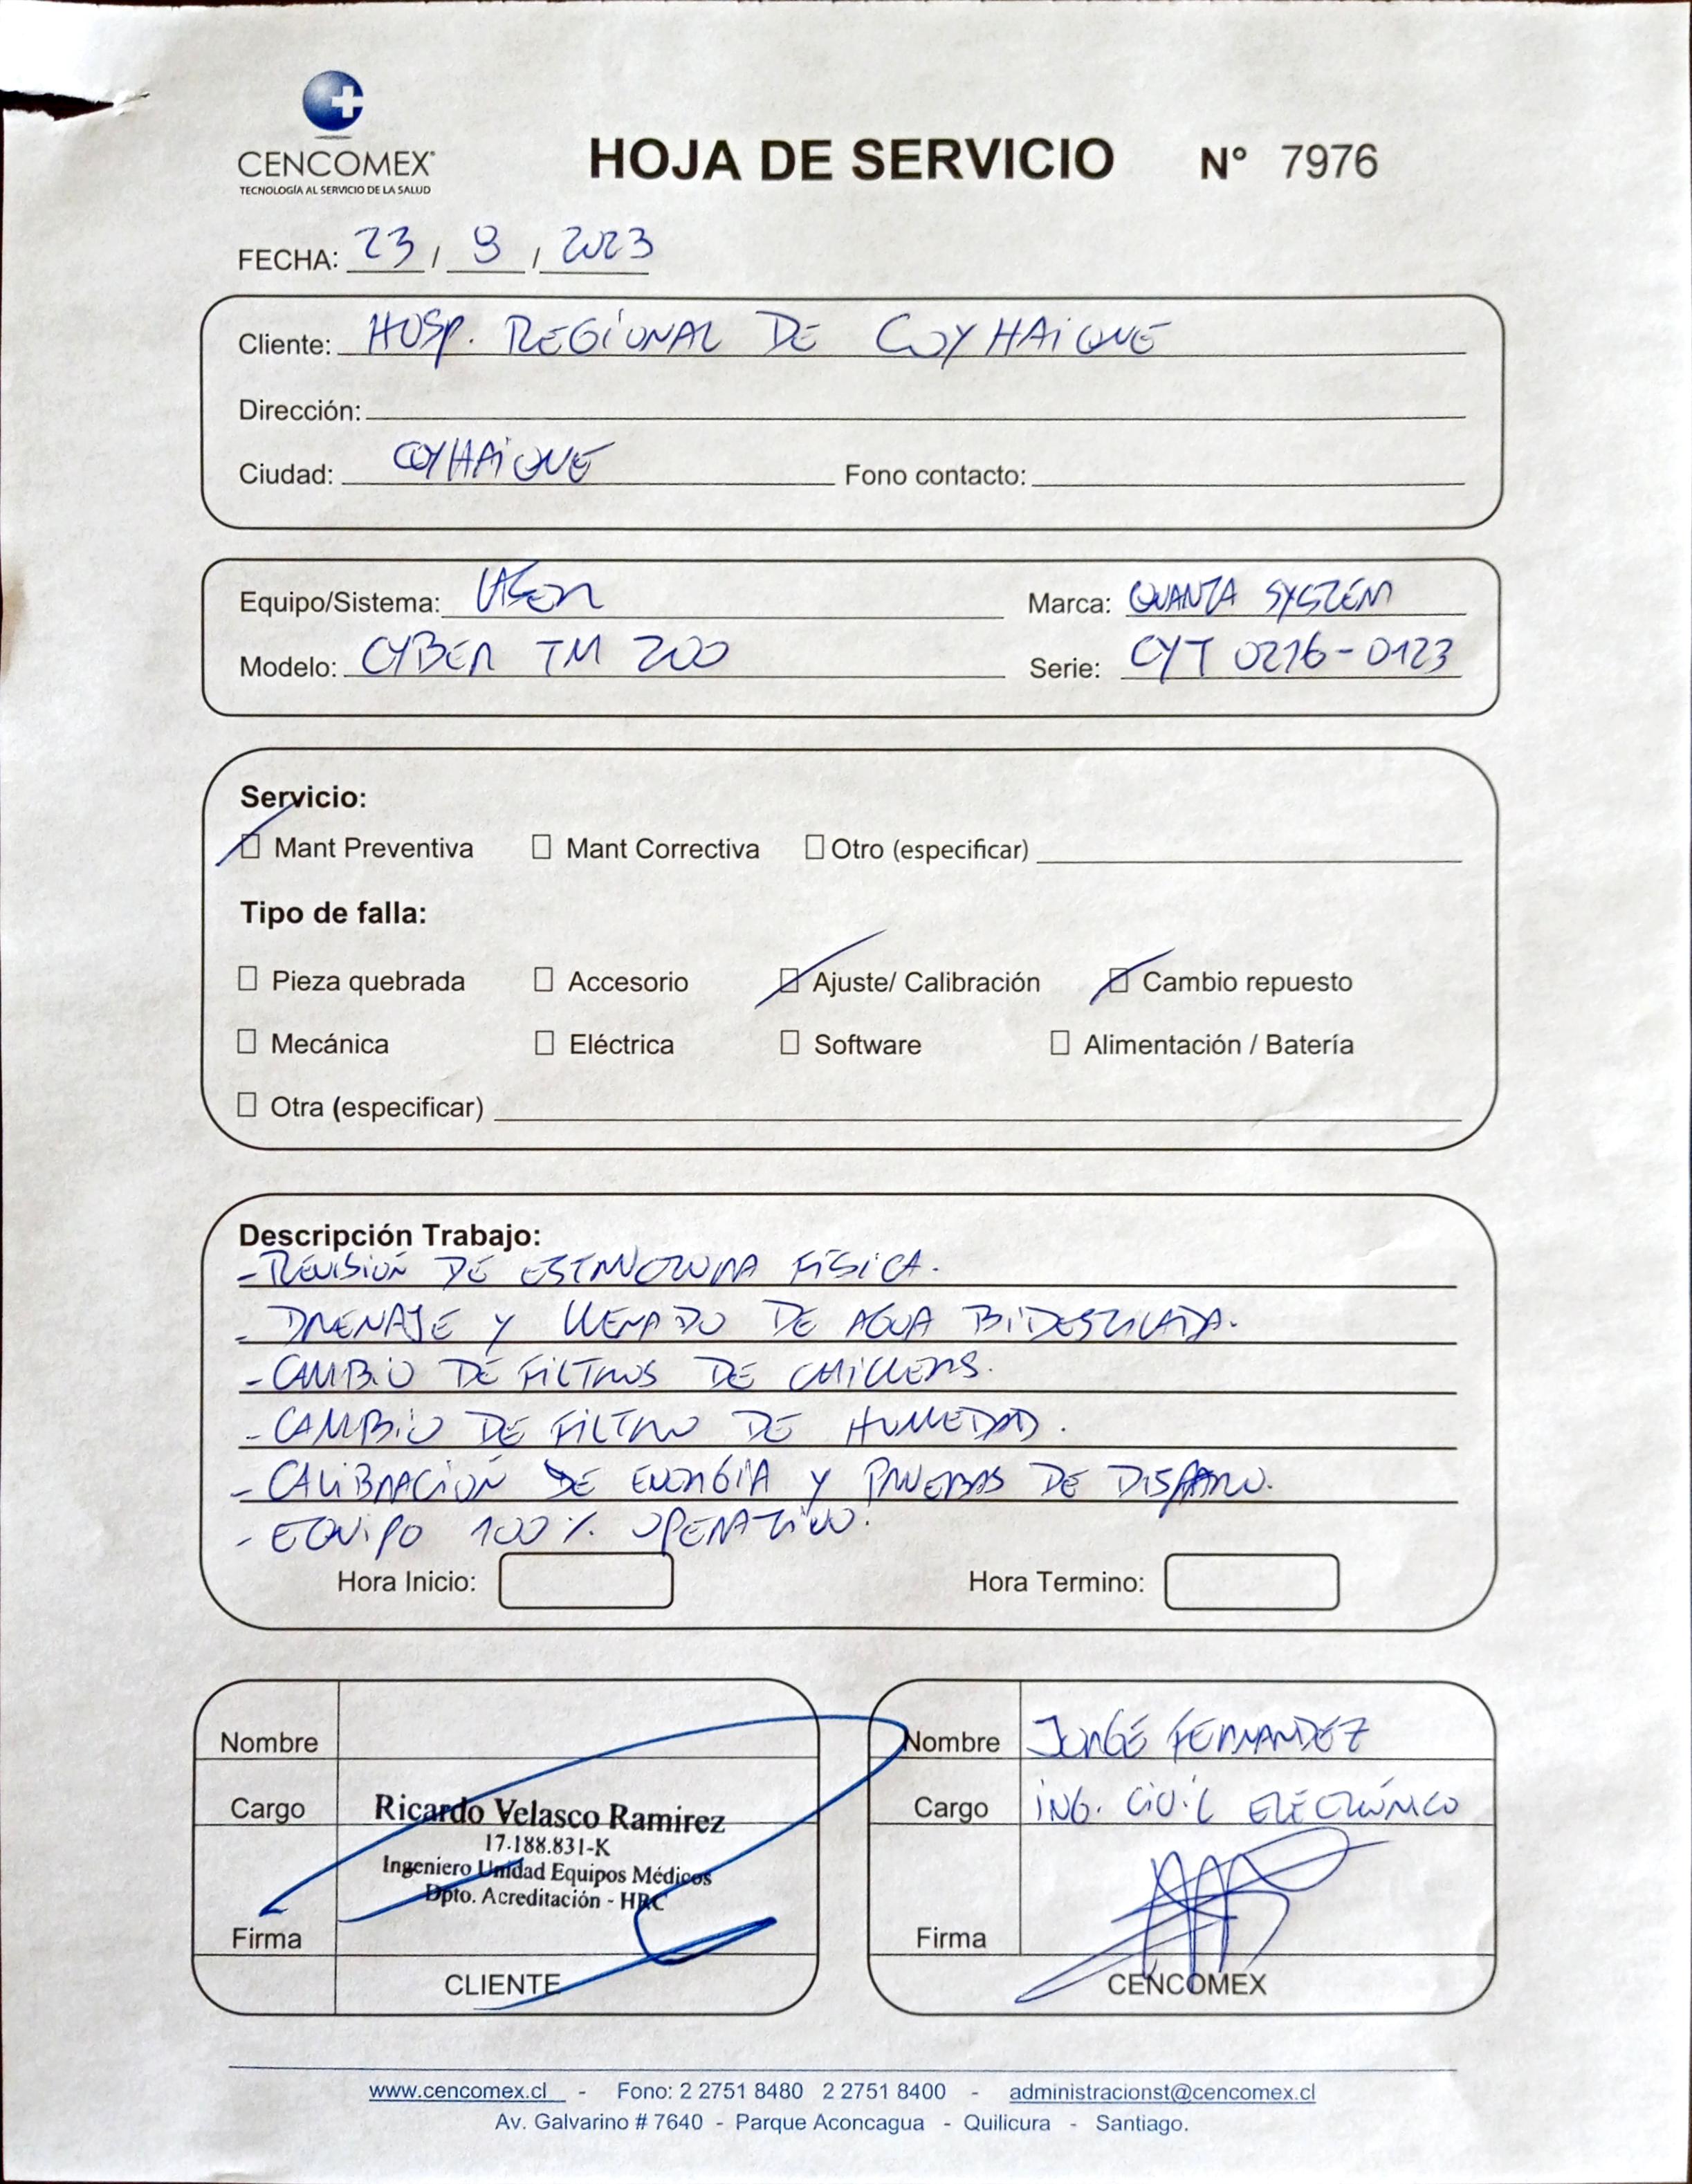 CENCOMEX
TECNOLOGÍA AL SERVICIO DE LA SALUD
HOJA DE SERVICIO N° 7976
FECHA: 23 / 9 / 2023
Cliente: HOSP. REGIONAL DE COYHAIQUE
Dirección:
Ciudad: COYHAIQUE Fono contacto:
Equipo/Sistema: LASER Marca: QUANTA SYSTEM
Modelo: CYBER TM 200 Serie: CYT 0216-0123
Servicio:
Mant Preventiva Mant Correctiva Otro (especificar)
Tipo de falla:
Pieza quebrada Accesorio Ajuste/ Calibración Cambio repuesto
Mecánica Eléctrica Software Alimentación / Batería
Otra (especificar)
Descripción Trabajo:
- REVISIÓN DE ESTRUCTURA FÍSICA.
- DRENAJE Y LLENADO DE AGUA BIDESTILADA.
- CAMBIO DE FILTROS DE CHILLERS.
- CAMBIO DE FILTRO DE HUMEDAD.
- CALIBRACIÓN DE ENERGÍA Y PRUEBAS DE DISPARO.
- EQUIPO 100% OPERATIVO.
Hora Inicio: Hora Termino:
Nombre
Cargo
Ricardo Velasco Ramirez
17.188.831-K
Ingeniero Unidad Equipos Médicos
Dpto. Acreditación - HRC
Firma
CLIENTE
Nombre JORGE FERNANDEZ
Cargo ING. CIVIL ELECTRÓNICO
Firma
CENCOMEX
www.cencomex.cl - Fono: 2 2751 8480 2 2751 8400 - administracionst@cencomex.cl
Av. Galvarino # 7640 - Parque Aconcagua - Quilicura - Santiago.